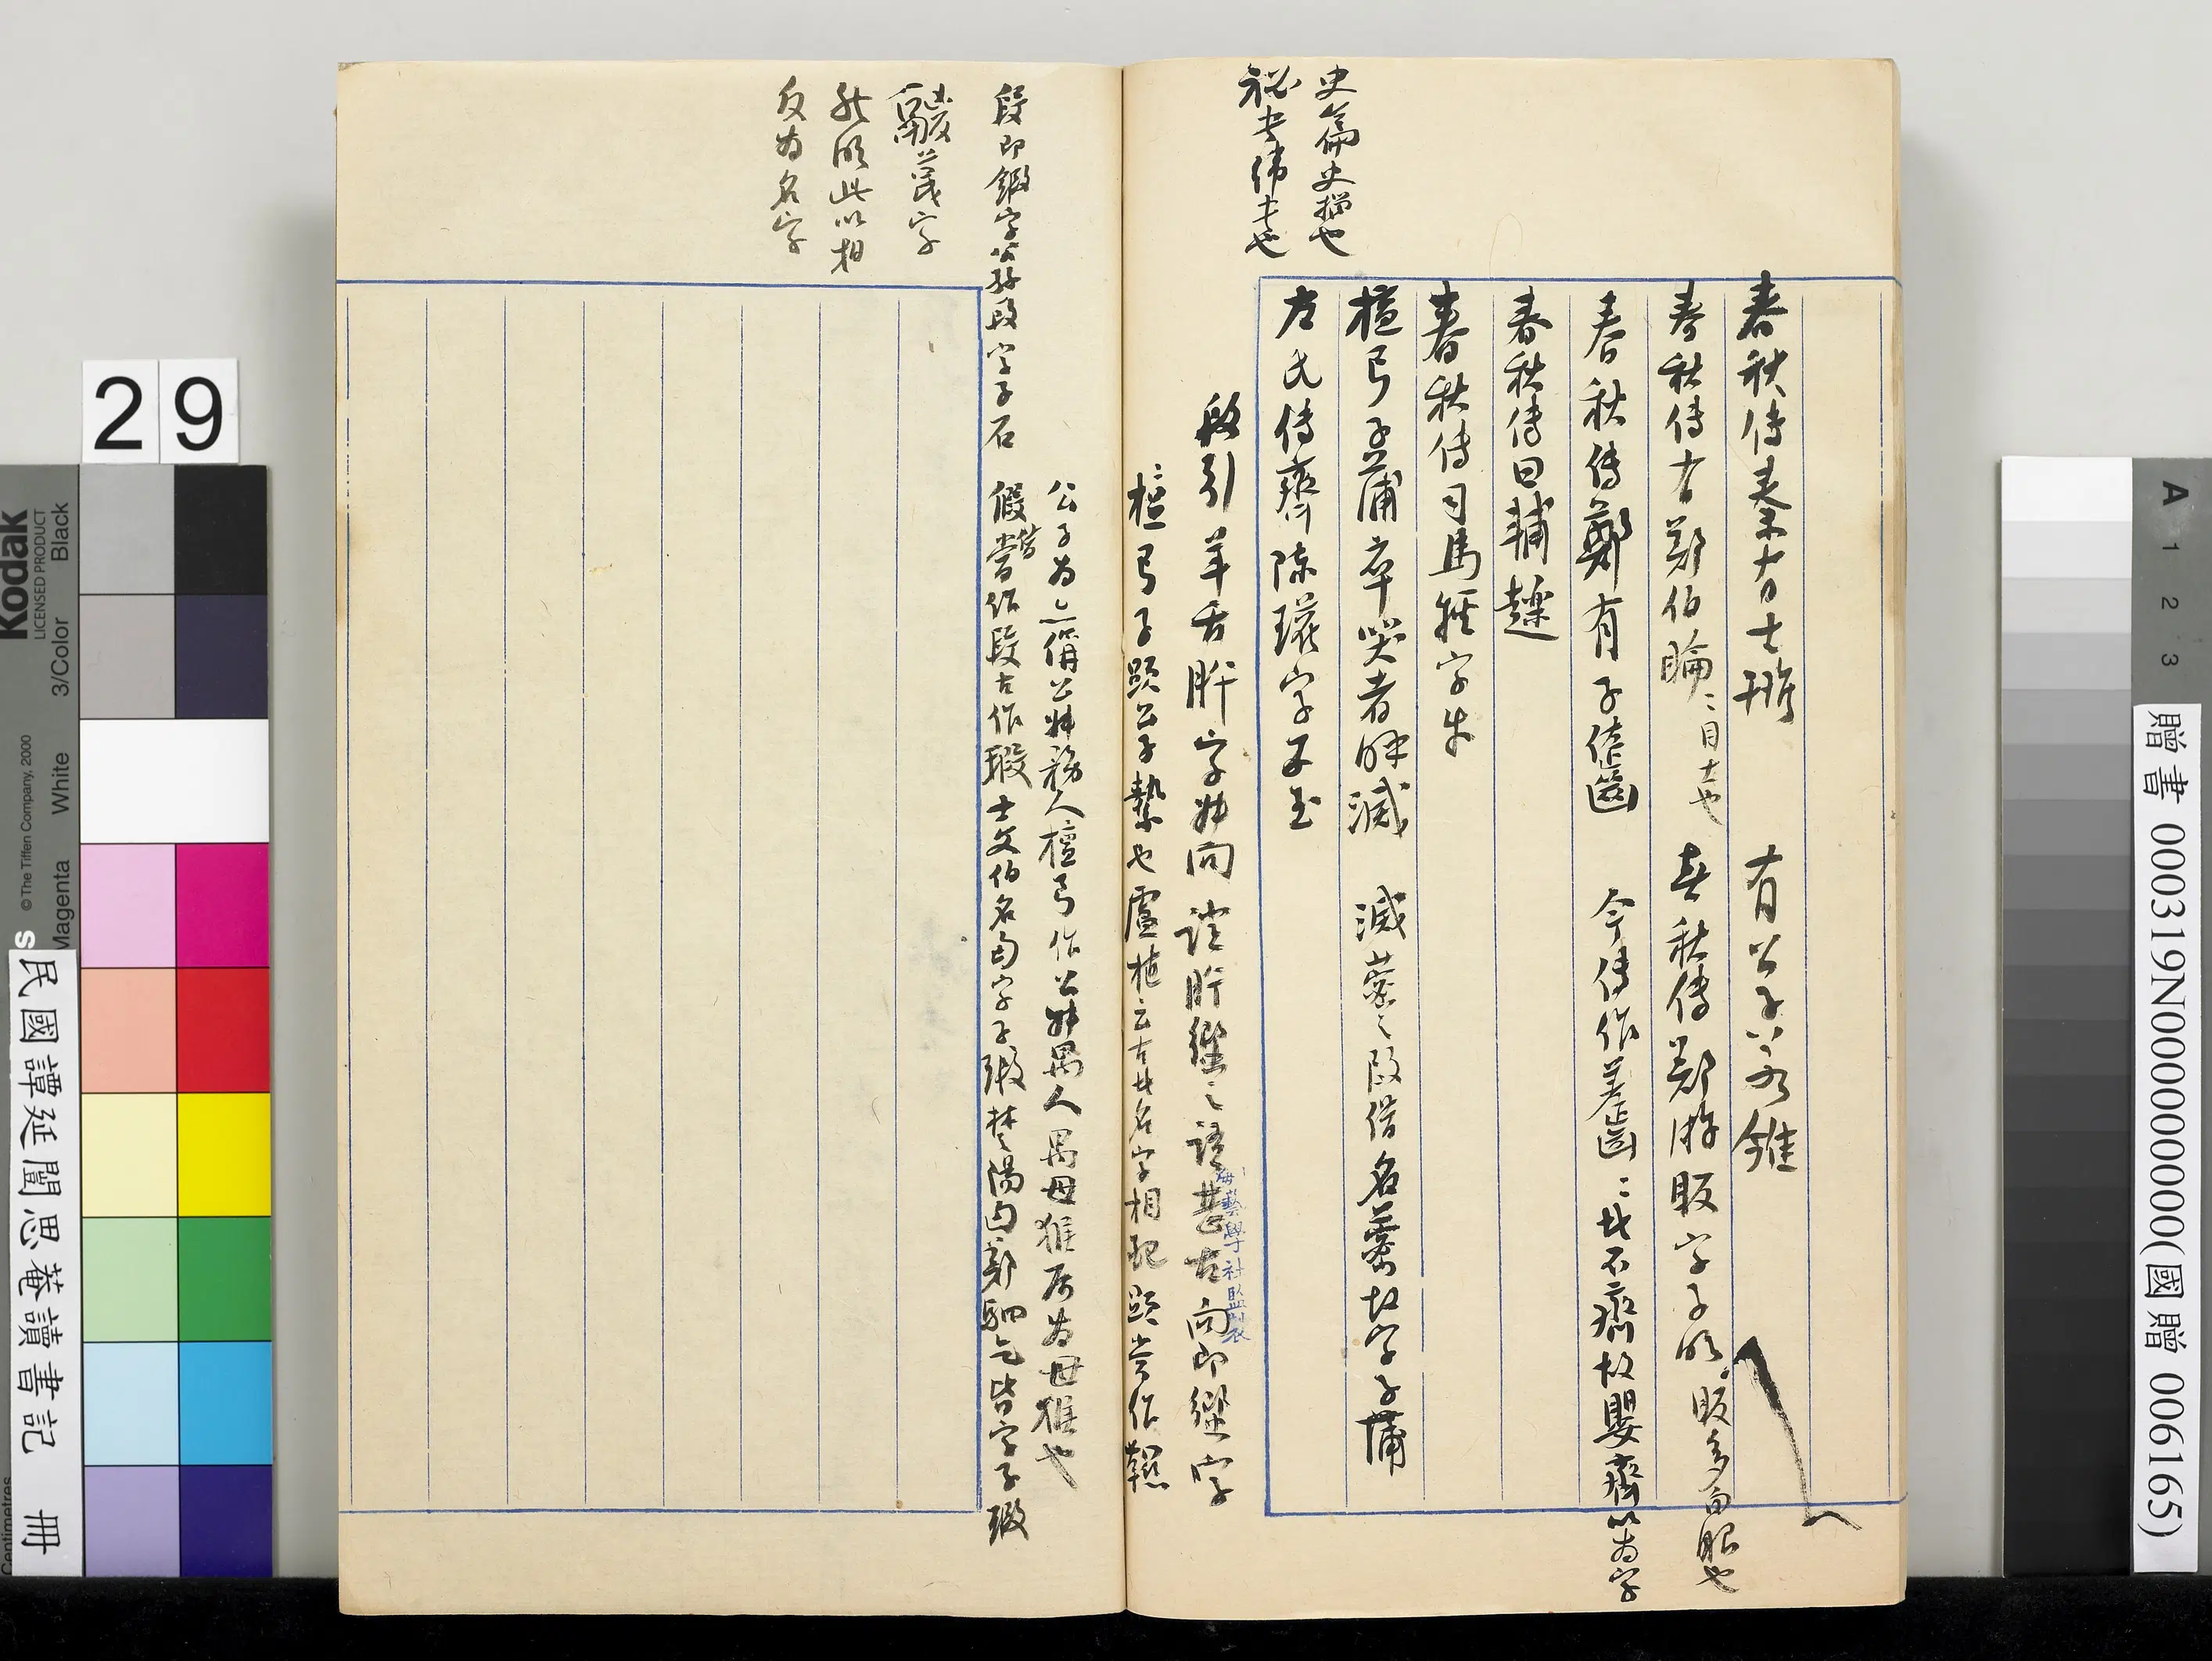 史篇史籀也
祕書緯書也
春秋傳秦有士雃 有公子苦雂
春秋傳有鄭伯睔睔目大也 春秋傳鄭游眅字子明眅多白眼也
春秋傳鄭有子𪘓 今傳作齹齹此不齊故嬰齊以為字
春秋傳曰輔𨅖
春秋傳司馬牼字牛
檀弓子蒲卒哭者呼滅 滅蔑之段借名蔑故字子蒲
左氏傳齊陳瓘字子玉
段引羊舌肸字叔向 釋肸蠁之語甚古向即蠁字
檀弓子顯公子縶也盧植云古者名字相配顯當作韅
公子為亦偁公叔務人檀弓作公叔禺人禺母猴屬為母猴也
段即鍛字公孫段字子石 假借當作段古作瑕士文伯名匄字子瑕楚陽匄鄭駟乞皆字子瑕
鬷蔑字
然明此以相
反為名字
每藝學社監製
29
Kodak
LICENSED PRODUCT
Black
3/Color
White
Magenta
© The Tiffen Company, 2000
Centimetres
民國譚延闓思菴讀書記 冊
A 1 2 3
贈書 000319N000000000(國贈 006165)